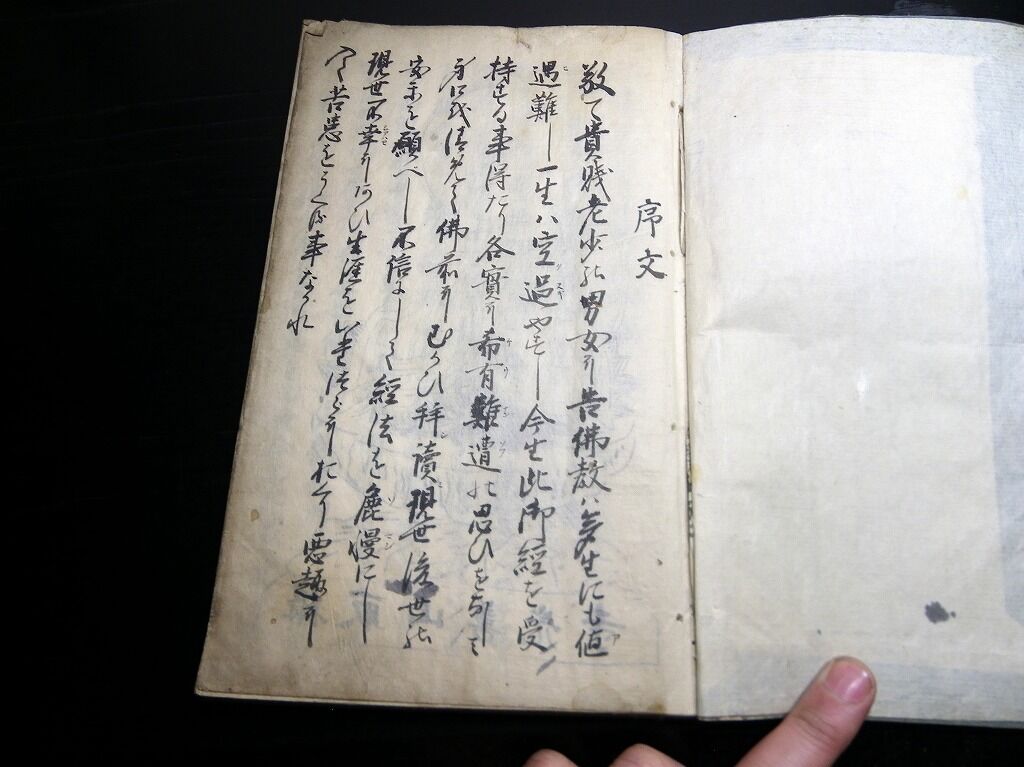 序文
敬て貴賤老少の男女に告佛教ハ多生にも値
遇難し一生ハ空過やすし今生此御經を受
持する事得たり各實に希有難遭の思ひを成し
身口を清めて佛前にむかひ拝讀現世後世の
安楽を願べし不信にして經法を麁慢にし
現世不幸にあひ生涯をいたづらにおくり悪趣に
入て苦患をうくる事なかれ